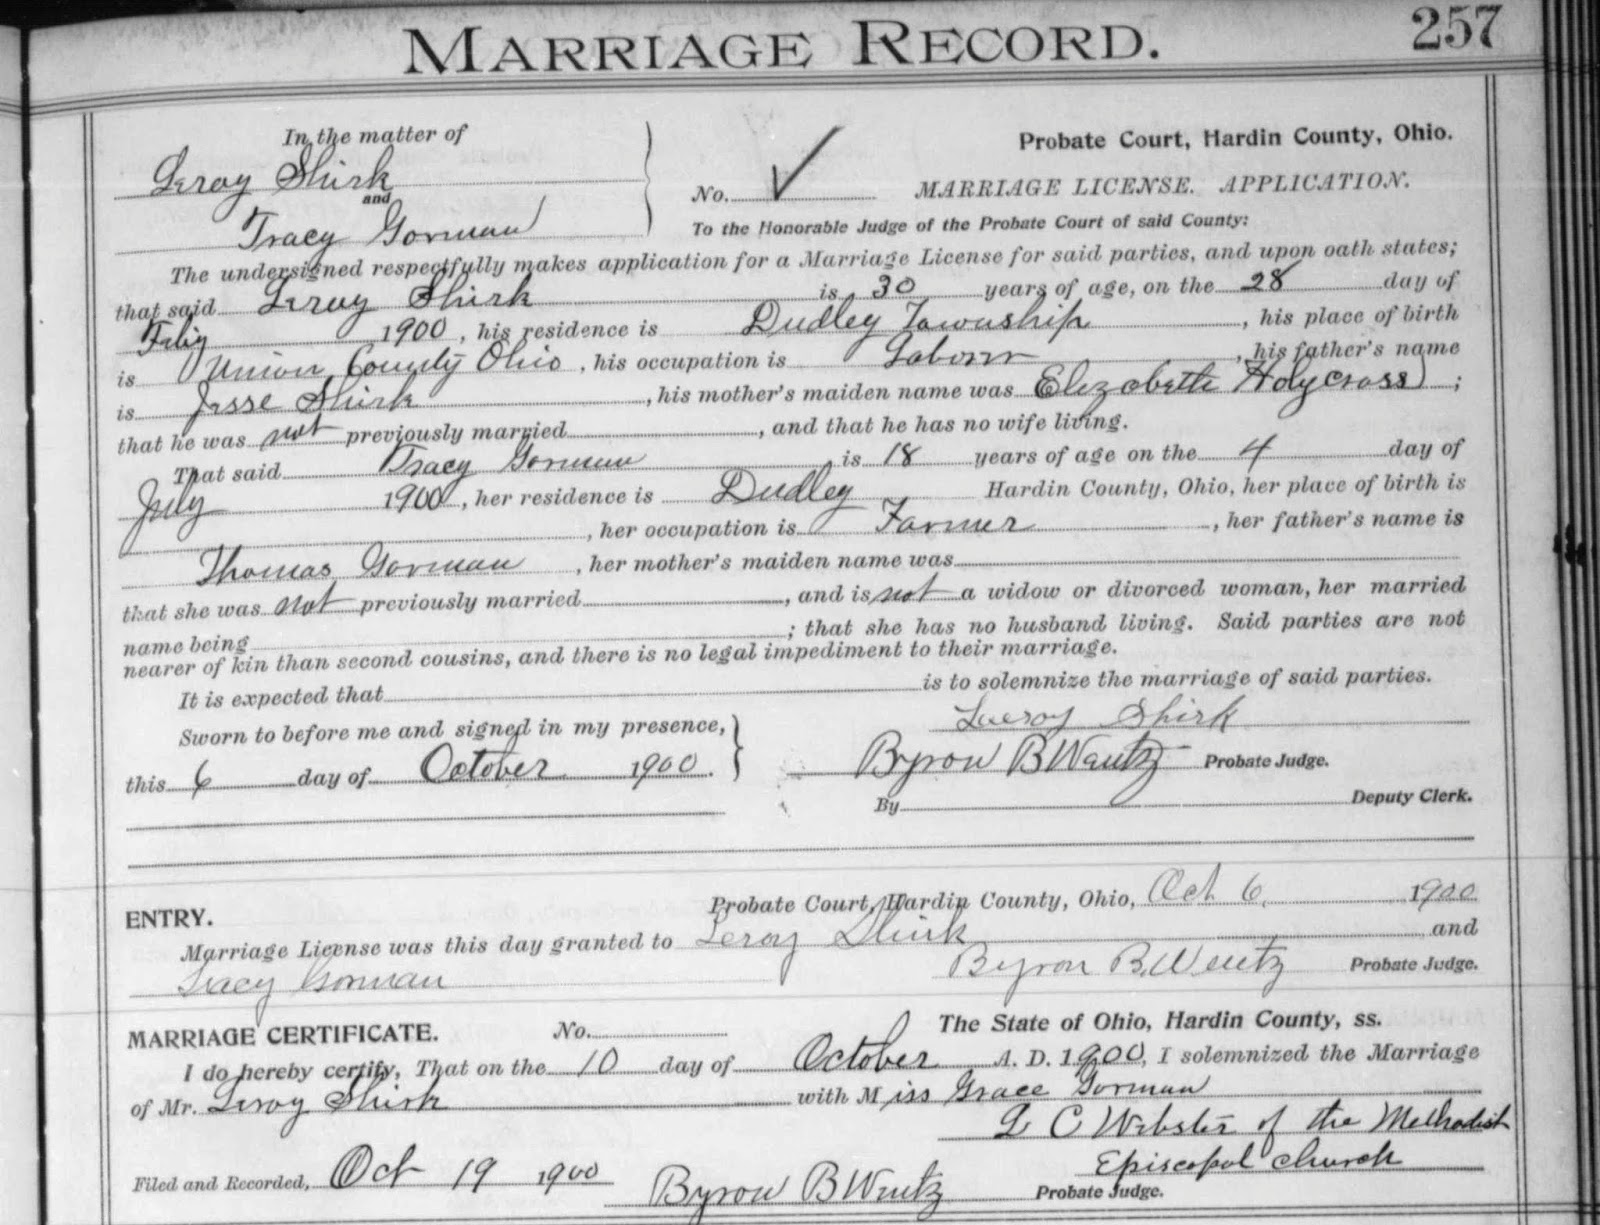 MARRIAGE RECORD. 257
In the matter of
Leroy Shirk
and
Tracy Gorman
Probate Court, Hardin County, Ohio.
No. ✓ MARRIAGE LICENSE. APPLICATION.
To the Honorable Judge of the Probate Court of said County:
The undersigned respectfully makes application for a Marriage License for said parties, and upon oath states;
that said Leroy Shirk is 30 years of age, on the 28 day of
Feby 1900, his residence is Dudley Township, his place of birth
is Union County Ohio, his occupation is Laborer, his father's name
is Jesse Shirk, his mother's maiden name was Elizabeth Holycross;
that he was not previously married, and that he has no wife living.
That said Tracy Gorman is 18 years of age on the 4 day of
July 1900, her residence is Dudley Hardin County, Ohio, her place of birth is
, her occupation is Farmer, her father's name is
Thomas Gorman, her mother's maiden name was
that she was not previously married, and is not a widow or divorced woman, her married
name being ; that she has no husband living. Said parties are not
nearer of kin than second cousins, and there is no legal impediment to their marriage.
It is expected that is to solemnize the marriage of said parties.
Sworn to before me and signed in my presence,
Leeroy Shirk
this 6 day of October 1900.
Byron B Wentz Probate Judge.
By Deputy Clerk.
Probate Court, Hardin County, Ohio, Oct. 6, 1900
ENTRY.
Marriage License was this day granted to Leroy Shirk and
Tracy Gorman Byron B. Wentz Probate Judge.
MARRIAGE CERTIFICATE. No. The State of Ohio, Hardin County, ss.
I do hereby certify, That on the 10 day of October A. D. 1900, I solemnized the Marriage
of Mr. Leroy Shirk with Miss Grace Gorman
L C Webster of the Methodist
Episcopal Church
Filed and Recorded, Oct 19 1900 Byron B Wentz Probate Judge.